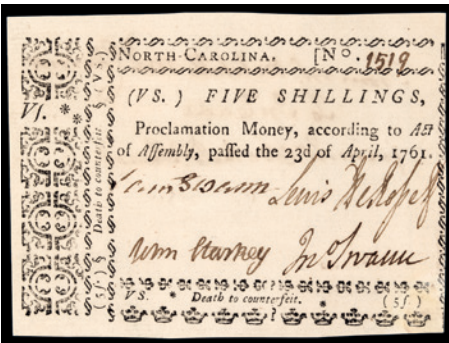 NORTH-CAROLINA. [No. 1519
(VS.) FIVE SHILLINGS,
Proclamation Money, according to Act
of Assembly, passed the 23d of April, 1761.
Sam Swann Lewis DeRosset
Jno Swann
VS. Death to counterfeit. (5s.)
VS.
(5s.) Death to counterfeit (Vs.)